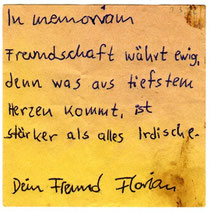 In memoriam
Freundschaft währt ewig,
denn was aus tiefstem
Herzen kommt, ist
stärker als alles Irdische.
Dein Freund Florian